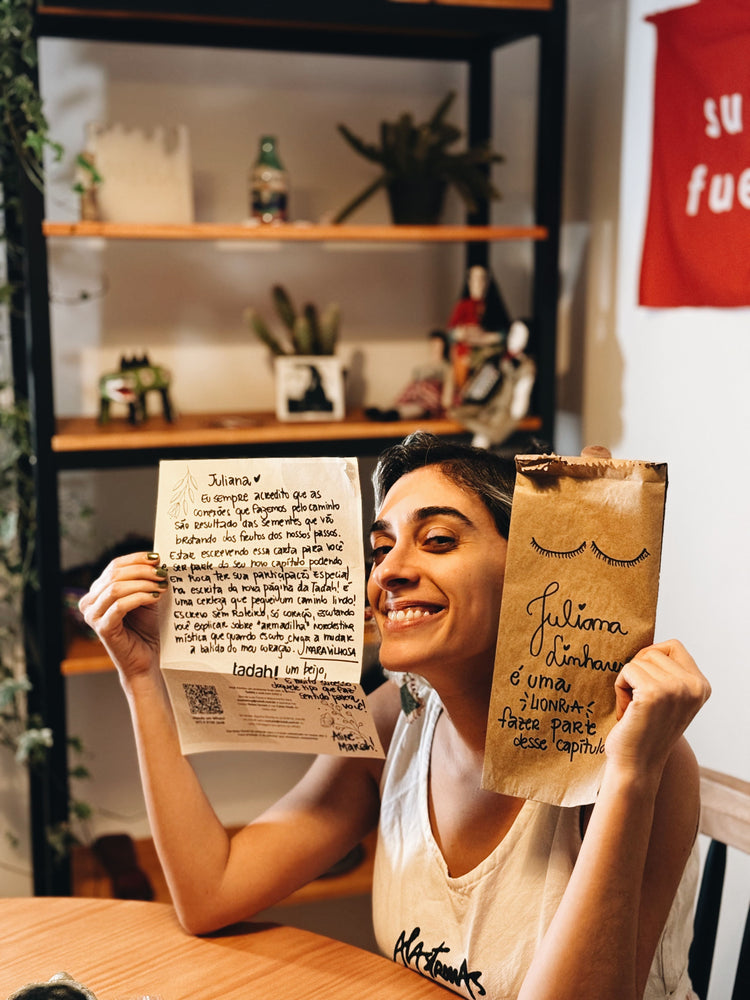 Juliana
Eu sempre acredito que as
conexões que fazemos pelo caminho
são resultado das sementes que vão
brotando dos frutos dos nossos passos.
Estar escrevendo essa carta para você
ser parte do seu novo capítulo podendo
em troca ter sua participação especial
na escrita da nova página da Tadah! é
uma certeza que peguei um caminho lindo!
Escrevo sem roteiro, só coração, escutando
você explicar sobre "armadilha" nordestina
mística que quando escuto, chega a mudar
a batida do meu coração. MARAVILHOSA
tadah! um beijo,
e muito sucesso
daquele tipo que faz
sentido para
você!
Aline
Juliana
Linhares
é uma
HONRA
fazer parte
desse capítulo
su
fue